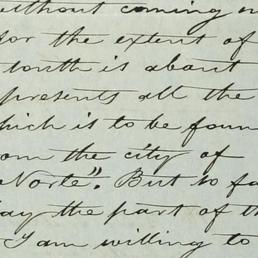 without coming
for the extent of
south is about
presents all the
which is to be foun
om the city of
Norte". But so fa
ay the part of th
I am willing to